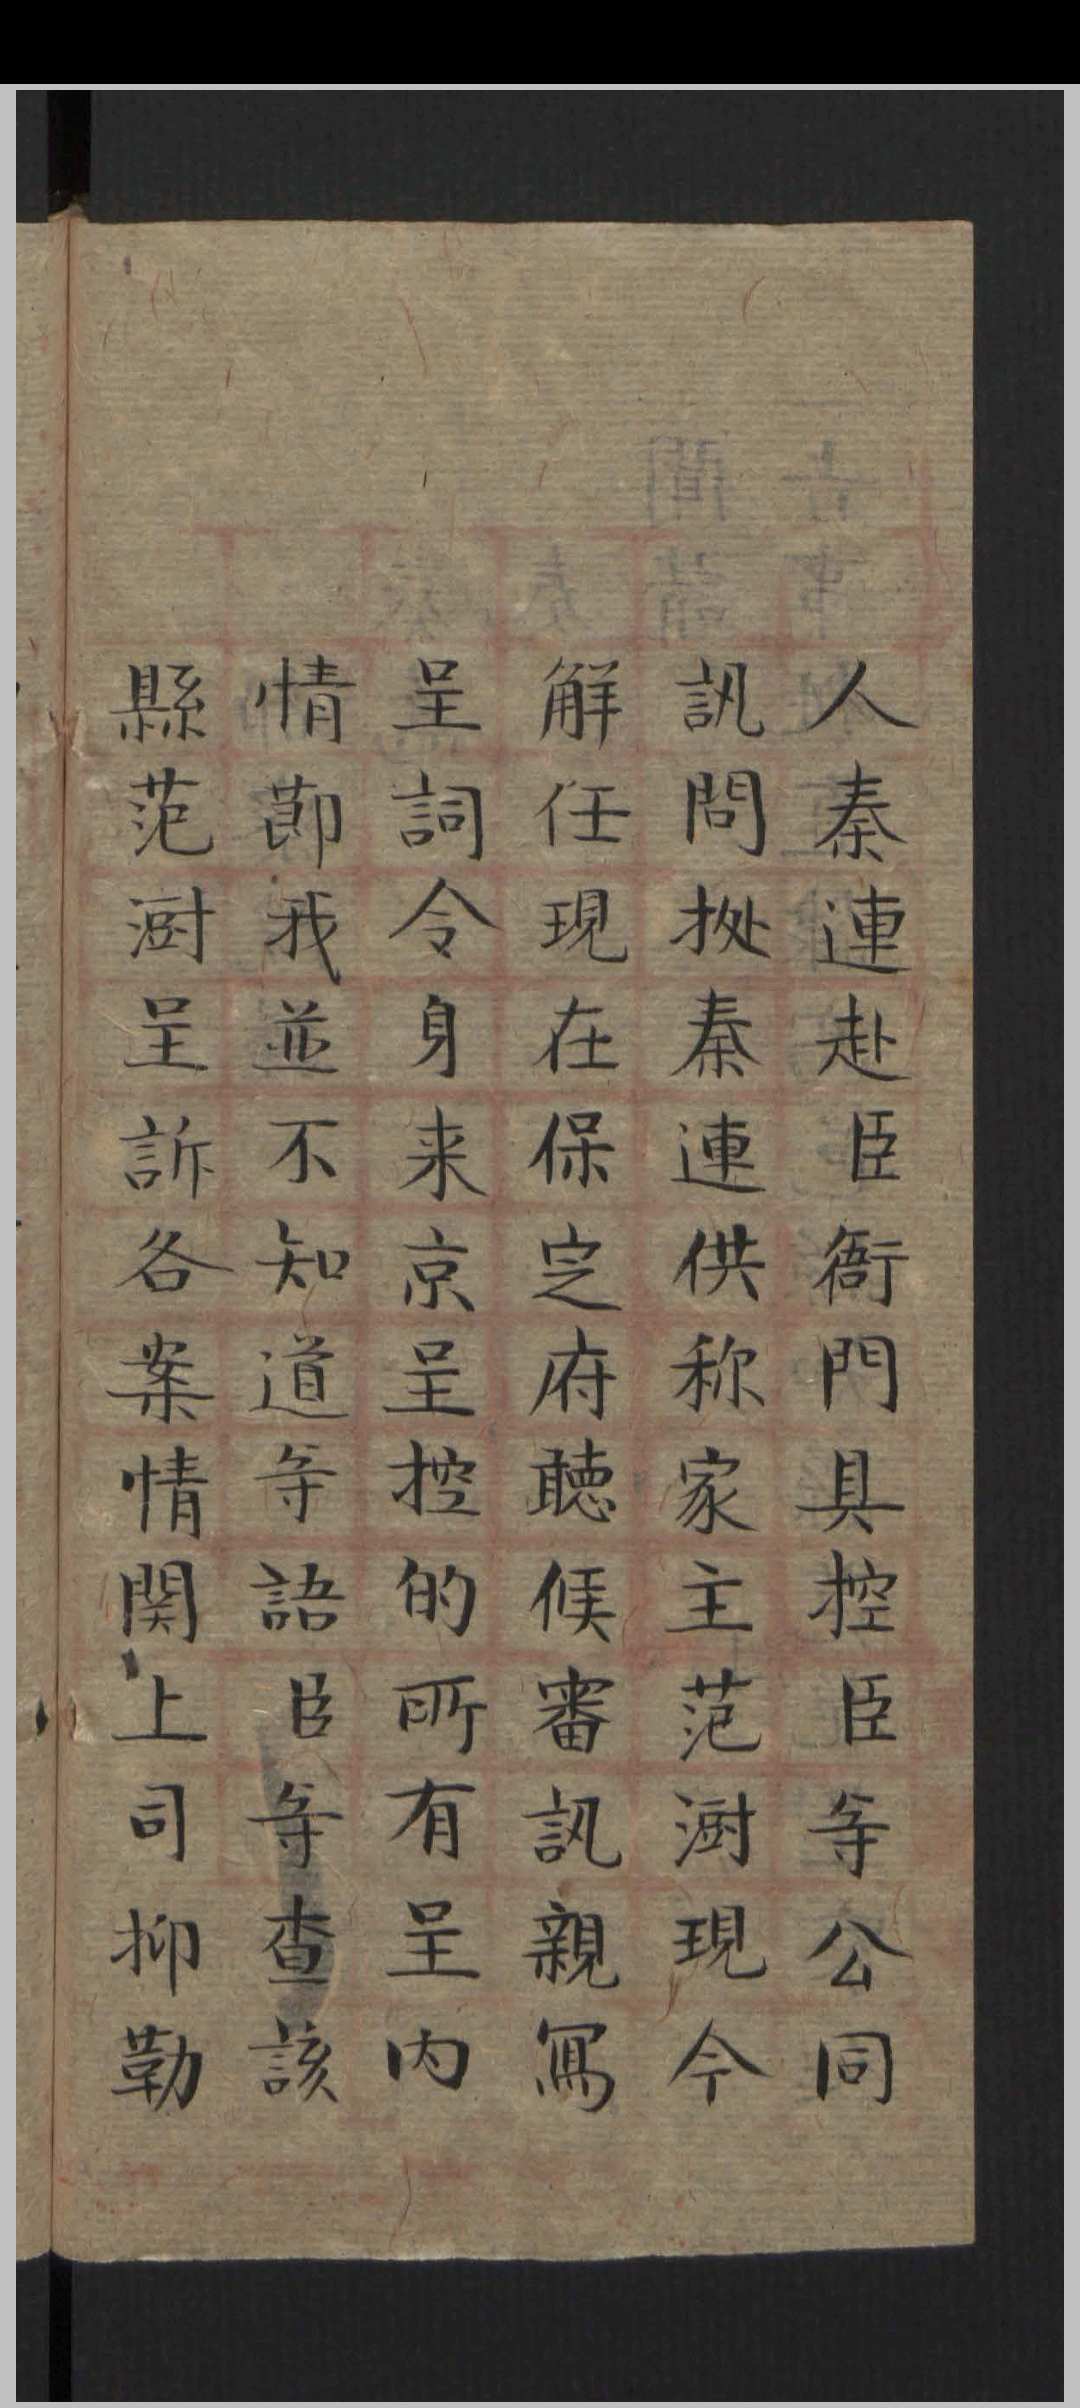 人秦連赴臣衙門具控臣等公同
訊問拠秦連供称家主范澍現今
解任現在保定府聴候審訊親寫
呈詞令身来京呈控的所有呈内
情節我並不知道等語臣等查該
縣范澍呈訴各案情関上司抑勒